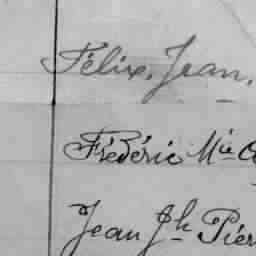 Félix, Jean.
Frédéric Mie
Jean Jh Pier